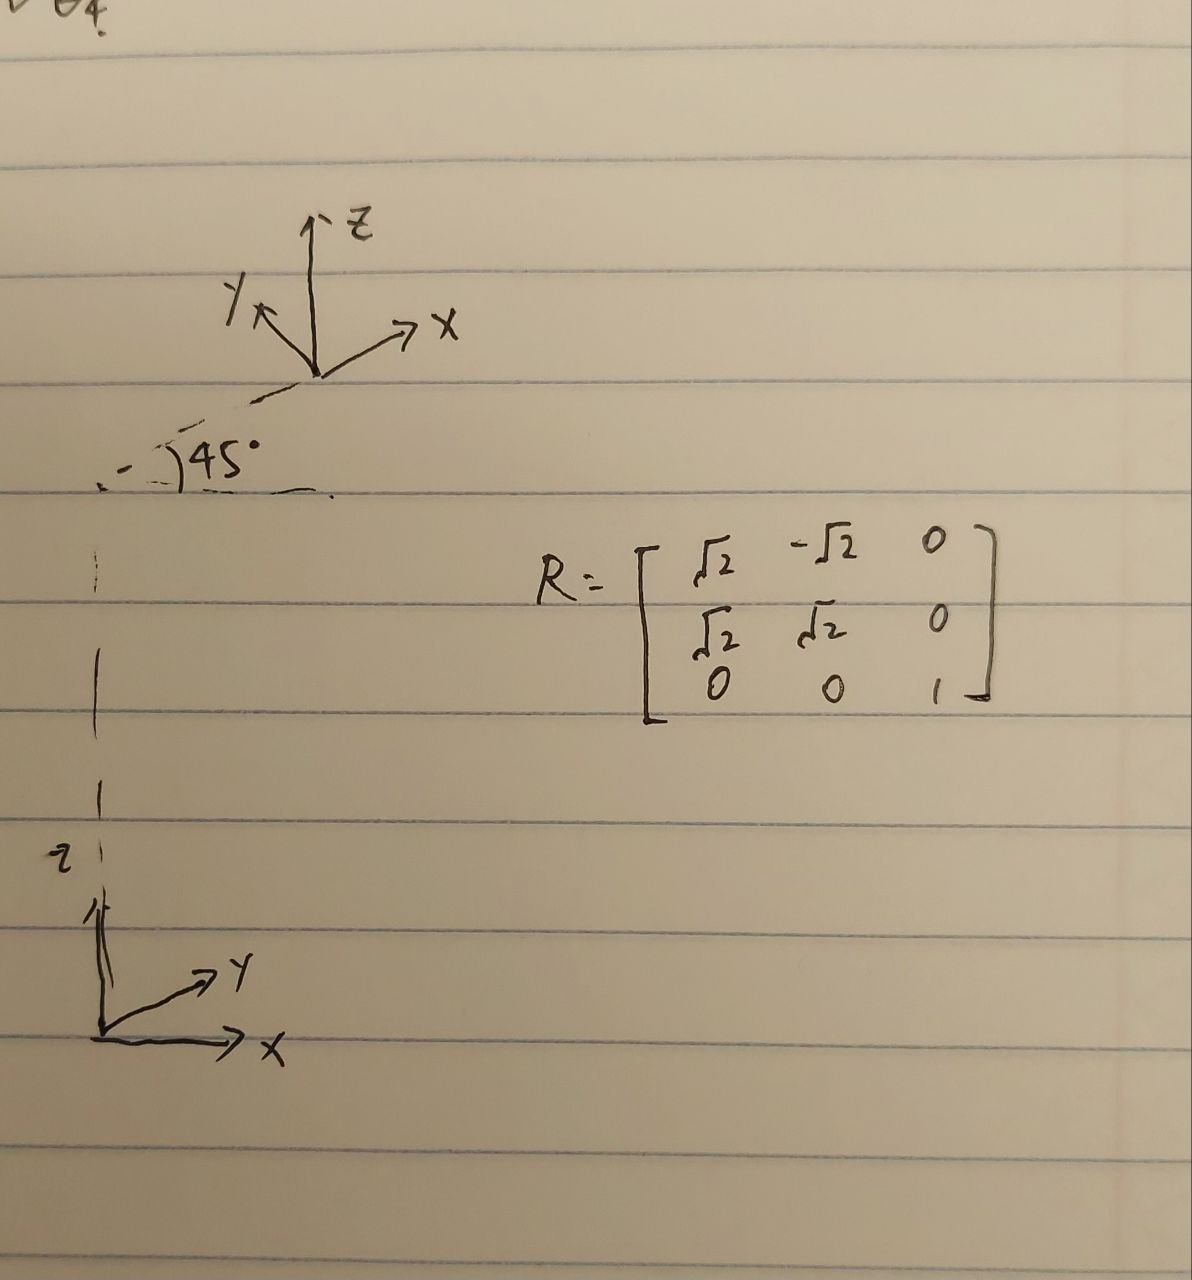 Z
Y X
45°
R = [ √2 -√2 0
√2 √2 0
0 0 1 ]
z
Y
X